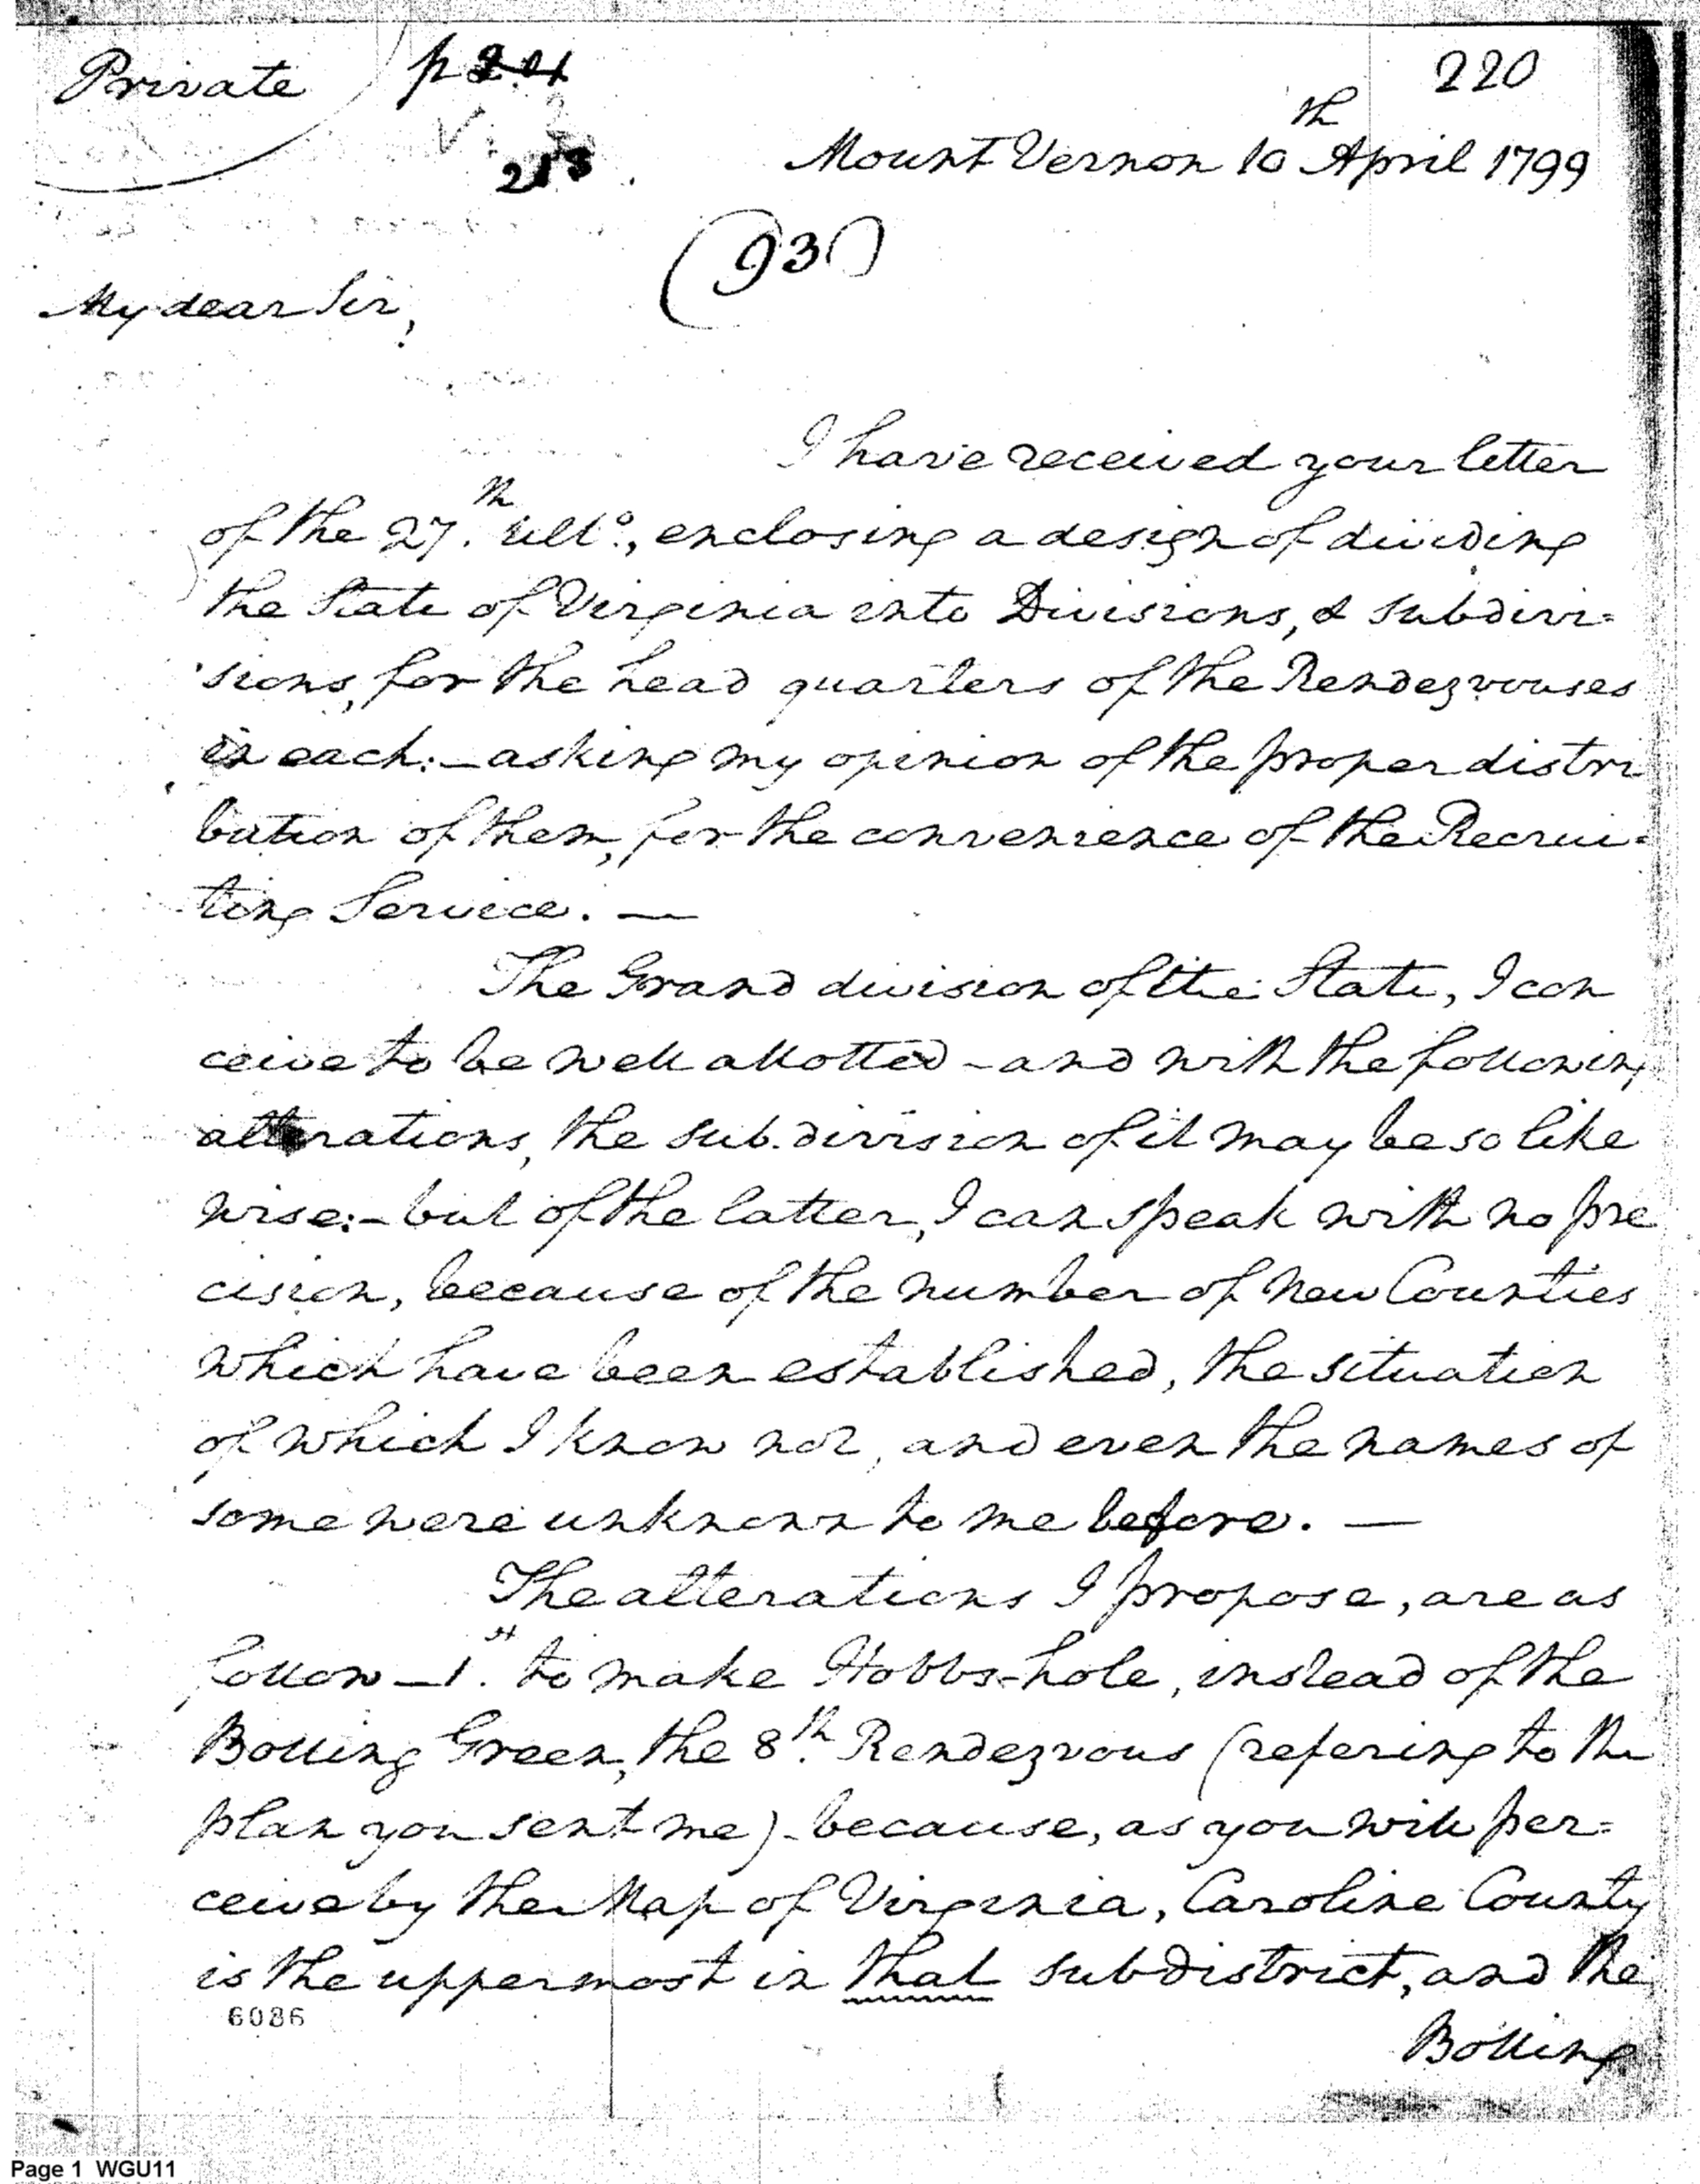 Private
220
213
Mount Vernon 10th April 1799
(93)
My dear Sir,
I have received your letter
of the 27.th ulto., enclosing a design of dividing
the State of Virginia into Divisions, & subdivi=
sions, for the head quarters of the Rendezvouses
in each:—asking my opinion of the proper distri
bution of them, for the convenience of the Recrui=
ting Service.—
The Grand division of the State, I con
ceive to be well allotted—and with the following
alterations, the sub.division of it may be so like
wise:—but of the latter, I can speak with no pre
cision, because of the number of new Counties
which have been established, the situation
of which I know not, and even the names of
some were unknown to me before.—
The alterations I propose, are as
follow—1.st to make Hobbs-hole, instead of the
Bolling Green, the 8th. Rendezvous (refering to the
plan you sent me)—because, as you will per=
ceive by the Map of Virginia, Caroline County
is the uppermost in that subdistrict, and the
6036
Bolling
Page 1 WGU11